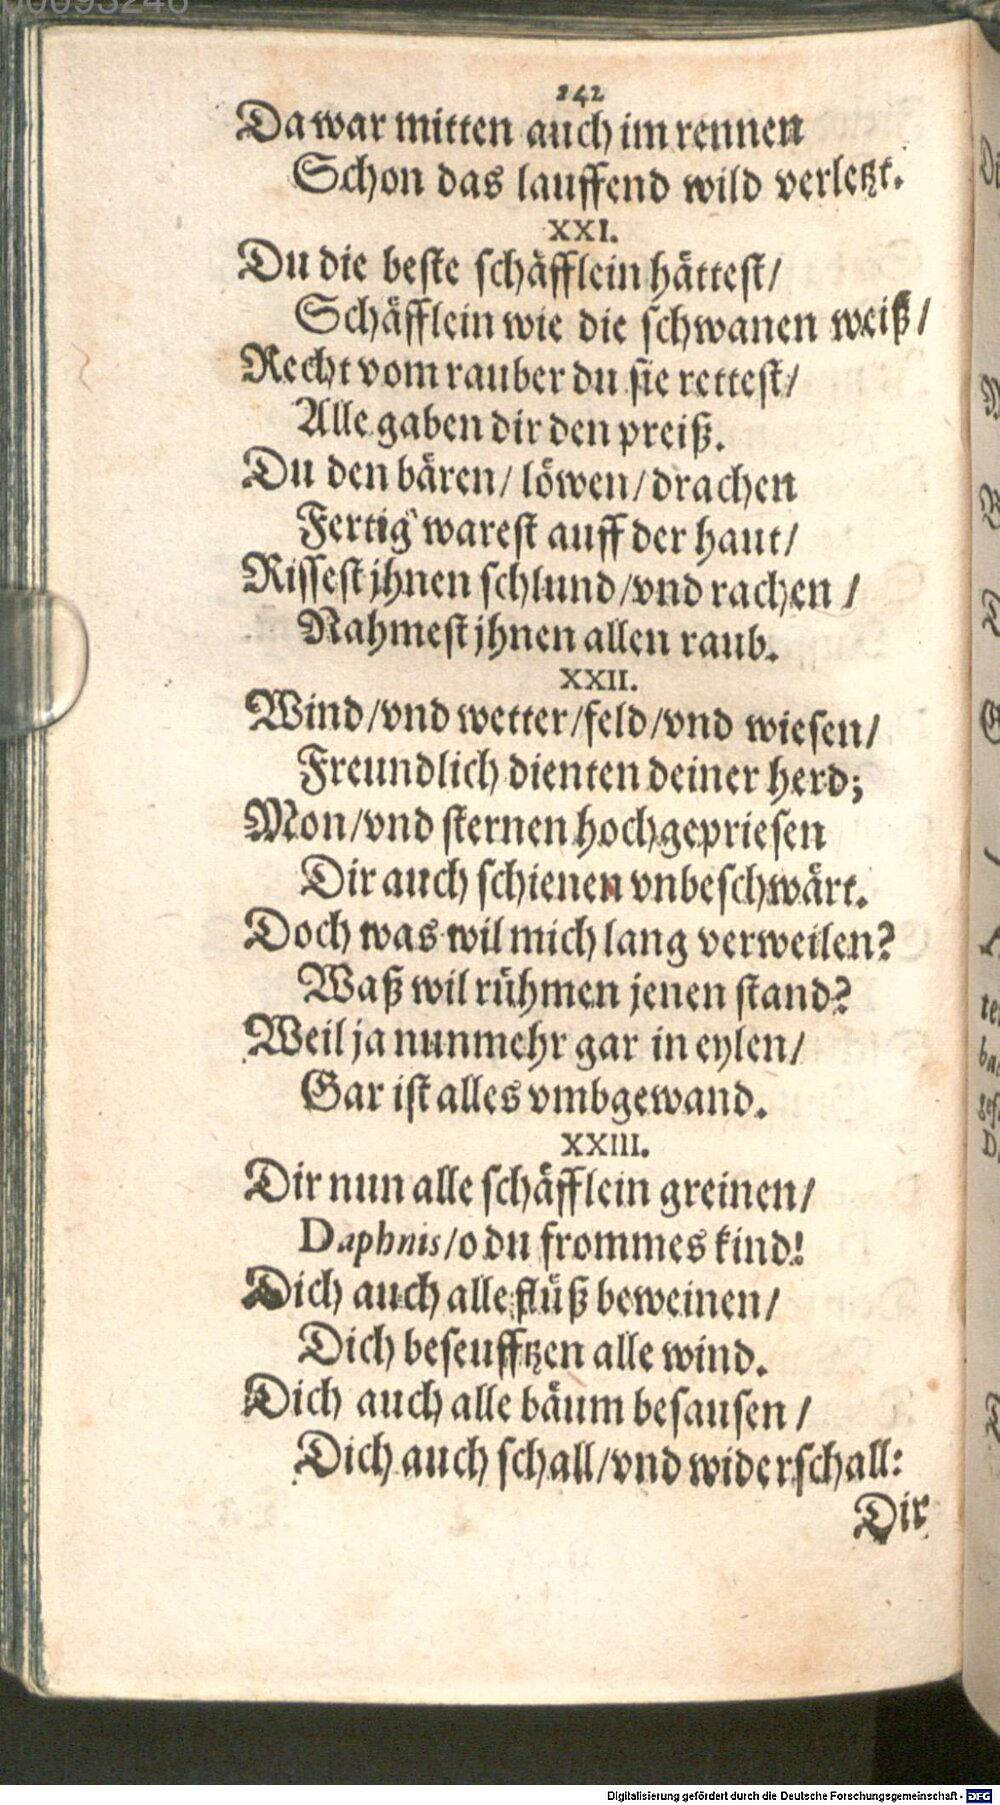 242
Da war mitten auch im rennen
Schon das lauffend wild verletzt.
XXI.
Du die beste schäfflein hättest/
Schäfflein wie die schwanen weiß/
Recht vom rauber du sie rettest/
Alle gaben dir den preiß.
Du den bären/ löwen/ drachen
Fertig warest auff der haut/
Rissest jhnen schlund/ vnd rachen/
Nahmest jhnen allen raub.
XXII.
Wind/ vnd wetter/ feld/ vnd wiesen/
Freundlich dienten deiner herd;
Mon/ vnd sternen hochgepriesen
Dir auch schienen vnbeschwärt.
Doch was wil mich lang verweilen?
Waß wil rühmen jenen stand?
Weil ja nunmehr gar in eylen/
Gar ist alles vmbgewand.
XXIII.
Dir nun alle schäfflein greinen/
Daphnis/ o du frommes kind!
Dich auch alle flüß beweinen/
Dich beseufftzen alle wind.
Dich auch alle bäum besausen/
Dich auch schall/ vnd widerschall:
Dir
Digitalisierung gefördert durch die Deutsche Forschungsgemeinschaft - DFG